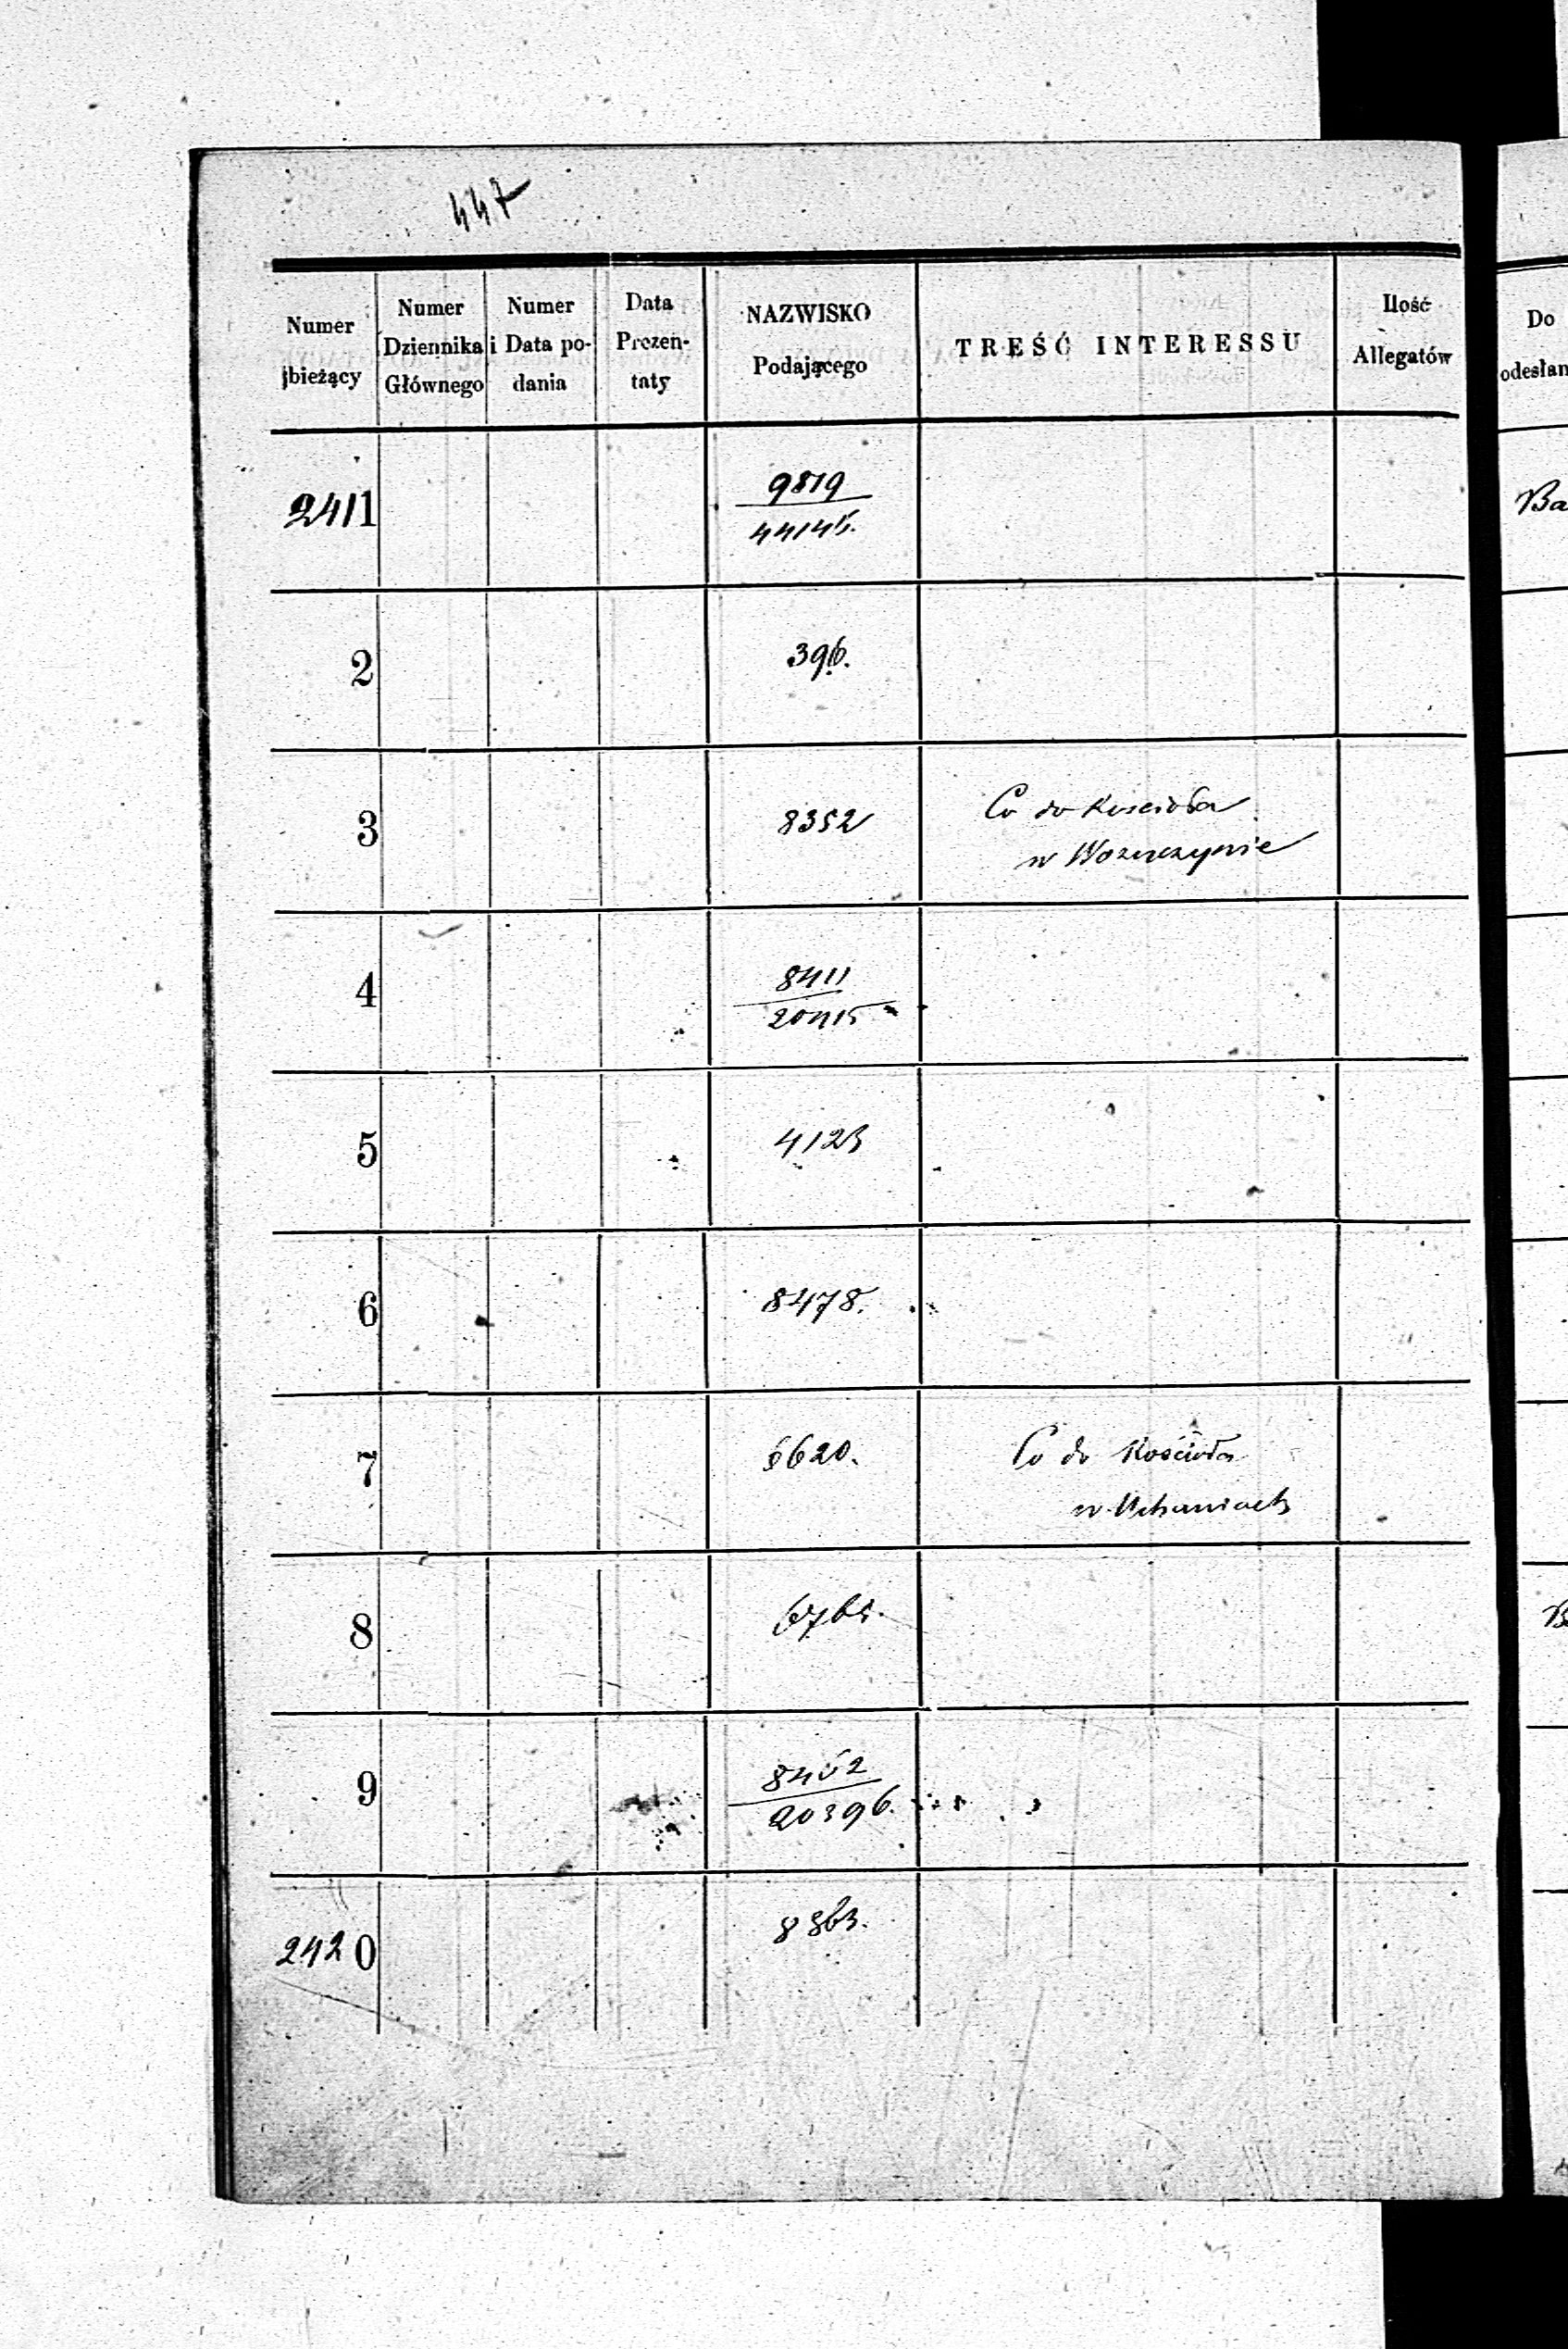 447
Numer bieżący
Numer Dziennika Głównego
Numer i Data podania
Data Prezentaty
NAZWISKO Podającego
TREŚĆ INTERESSU
Ilość Allegatów
Do odesłan
2411
9819
44145.
Ba
2
396.
3
8352
Co do Kościoła
w Wozuczynie
4
8411
20415
5
4123
6
8478.
7
6620.
Co do Kościoła
w Uchaniach
8
6765.
B
9
8452
20396.
2420
8863.